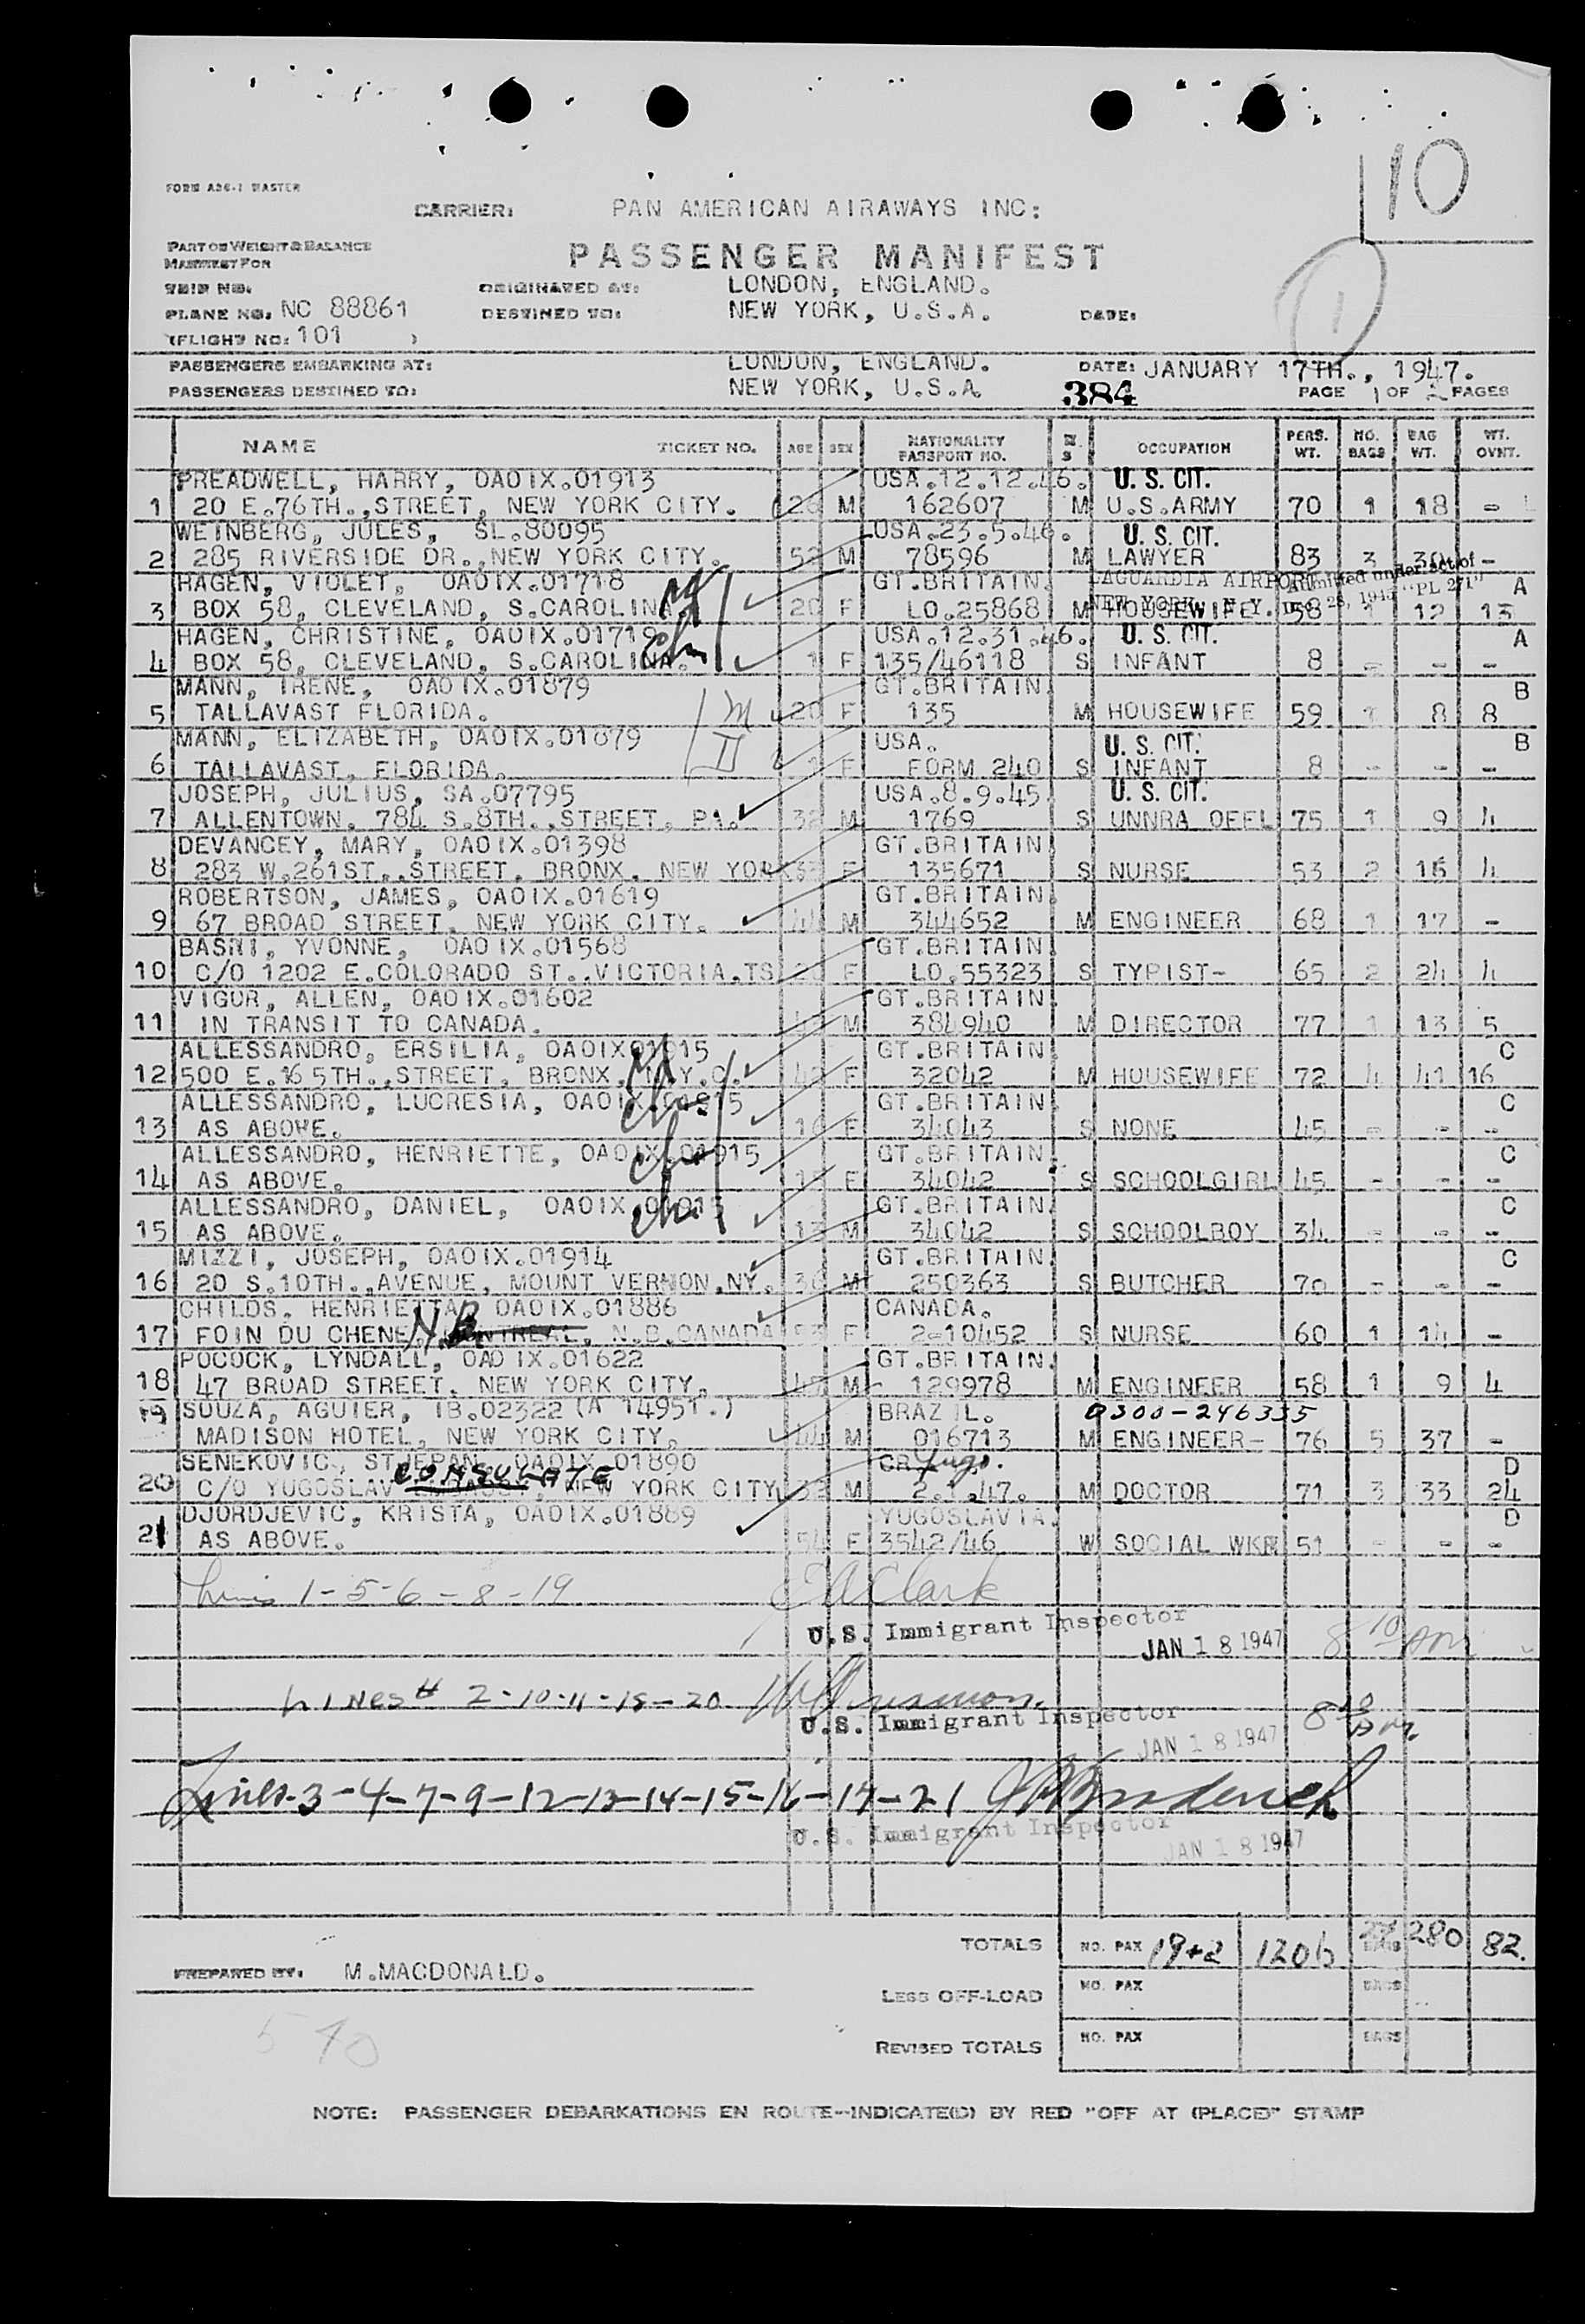 10
FORM ADC-1 MASTER
CARRIER: PAN AMERICAN AIRAWAYS INC:
PART OF WEIGHT & BALANCE
MANIFEST FOR
PASSENGER MANIFEST
1
TRIP NO. ORIGINATED AT: LONDON, ENGLAND.
PLANE NO. NC 88861 DESTINED TO: NEW YORK, U.S.A. DATE:
(FLIGHT NO: 101 )
PASSENGERS EMBARKING AT: LONDON, ENGLAND. DATE: JANUARY 17TH., 1947.
PASSENGERS DESTINED TO: NEW YORK, U.S.A. 384 PAGE 1 OF 2 PAGES
NAME TICKET NO. AGE SEX NATIONALITY PASSPORT NO. M S OCCUPATION PERS. WT. NO. BAGS BAG WT. WT. OVNT.
PREADWELL, HARRY, OAOIX.01913 USA.12.12.46. U. S. CIT.
1 20 E.76TH.,STREET, NEW YORK CITY. 26 M 162607 M U.S.ARMY 70 1 18 -
WEINBERG, JULES, SL.80095 USA.23.5.46. U. S. CIT.
2 285 RIVERSIDE DR.,NEW YORK CITY. 52 M 78596 M LAWYER 83 3 30 -
HAGEN, VIOLET, OAOIX.01718 GT.BRITAIN. LAGUARDIA AIRPORT Admitted under act of A
3 BOX 58, CLEVELAND, S.CAROLINA. 20 F LO.25868 M HOUSEWIFE 58 1 12 13
NEW YORK, N. Y. Dec 28, 1945 "PL 271"
HAGEN, CHRISTINE, OAOIX.01719 USA.12.31.46. U. S. CIT. A
4 BOX 58, CLEVELAND, S.CAROLINA. 1 F 135/46118 S INFANT 8 - - -
MANN, IRENE, OAOIX.01879 GT.BRITAIN. B
5 TALLAVAST FLORIDA. 20 F 135 M HOUSEWIFE 59 1 8 8
MANN, ELIZABETH, OAOIX.01879 USA. U. S. CIT. B
6 TALLAVAST, FLORIDA. 1 F FORM 240 S INFANT 8 - - -
JOSEPH, JULIUS, SA.07795 USA.8.9.45. U. S. CIT.
7 ALLENTOWN, 784 S.8TH.,STREET, PA. 32 M 1769 S UNNRA OFFL 75 1 9 4
DEVANCEY, MARY, OAOIX.01398 GT.BRITAIN.
8 283 W.261ST.,STREET, BRONX, NEW YORK F 135671 S NURSE 53 2 15 4
ROBERTSON, JAMES, OAOIX.01619 GT.BRITAIN.
9 67 BROAD STREET, NEW YORK CITY. 44 M 344652 M ENGINEER 68 1 17 -
BASRI, YVONNE, OAOIX.01568 GT.BRITAIN.
10 C/O 1202 E.COLORADO ST.,VICTORIA,TS F LO.55323 S TYPIST- 65 2 24 4
VIGUR, ALLEN, OAOIX.01602 GT.BRITAIN.
11 IN TRANSIT TO CANADA. M 384940 M DIRECTOR 77 1 13 5
ALLESSANDRO, ERSILIA, OAOIX01915 GT.BRITAIN. C
12 500 E.165TH.,STREET, BRONX, N.Y.C. 42 F 32042 M HOUSEWIFE 72 4 41 16
ALLESSANDRO, LUCRESIA, OAOIX.01915 GT.BRITAIN. C
13 AS ABOVE. 16 F 34043 S NONE 45 - - -
ALLESSANDRO, HENRIETTE, OAOIX.01915 GT.BRITAIN. C
14 AS ABOVE. 15 F 34042 S SCHOOLGIRL 45 - - -
ALLESSANDRO, DANIEL, OAOIX.01915 GT.BRITAIN. C
15 AS ABOVE. 13 M 34042 S SCHOOLBOY 34 - - -
MIZZI, JOSEPH, OAOIX.01914 GT.BRITAIN. C
16 20 S.10TH.,AVENUE, MOUNT VERNON,NY. 36 M 250363 S BUTCHER 70 - - -
CHILDS, HENRIETTA, OAOIX.01886 CANADA.
17 FOIN DU CHENE, N.B. MONTREAL, N.B.CANADA 53 F 2-10452 S NURSE 60 1 14 -
POCOCK, LYNDALL, OAOIX.01622 GT.BRITAIN.
18 47 BROAD STREET, NEW YORK CITY. M 129978 M ENGINEER 58 1 9 4
19 SOUZA, AGUIER, IB.02322 (A 14951.) BRAZIL. 0300-246335
MADISON HOTEL, NEW YORK CITY. 44 M 016713 M ENGINEER- 76 5 37 -
SENEKOVIC, STJEPAN, OAOIX.01890 Yugo. D
20 C/O YUGOSLAV CONSULATE, NEW YORK CITY 32 M 2.1.47. M DOCTOR 71 3 33 24
DJORDJEVIC, KRISTA, OAOIX.01889 YUGOSLAVIA. D
21 AS ABOVE. 54 F 3542/46 W SOCIAL WKR 51 - - -
Lines 1-5-6-8-19 E A Clark
U.S. Immigrant Inspector
JAN 18 1947 8 10 AM
LINES # 2-10-11-18-20
U.S. Immigrant Inspector
JAN 18 1947 8 10 AM
Lines-3-4-7-9-12-13-14-15-16-17-21 J Broderick
U.S. Immigrant Inspector
JAN 18 1947
TOTALS NO. PAX 19+2 1206 BAGS 280 82.
PREPARED BY: M.MACDONALD.
LESS OFF-LOAD NO. PAX BAGS
REVISED TOTALS NO. PAX BAGS
NOTE: PASSENGER DEBARKATIONS EN ROUTE--INDICATE(D) BY RED "OFF AT (PLACE)" STAMP